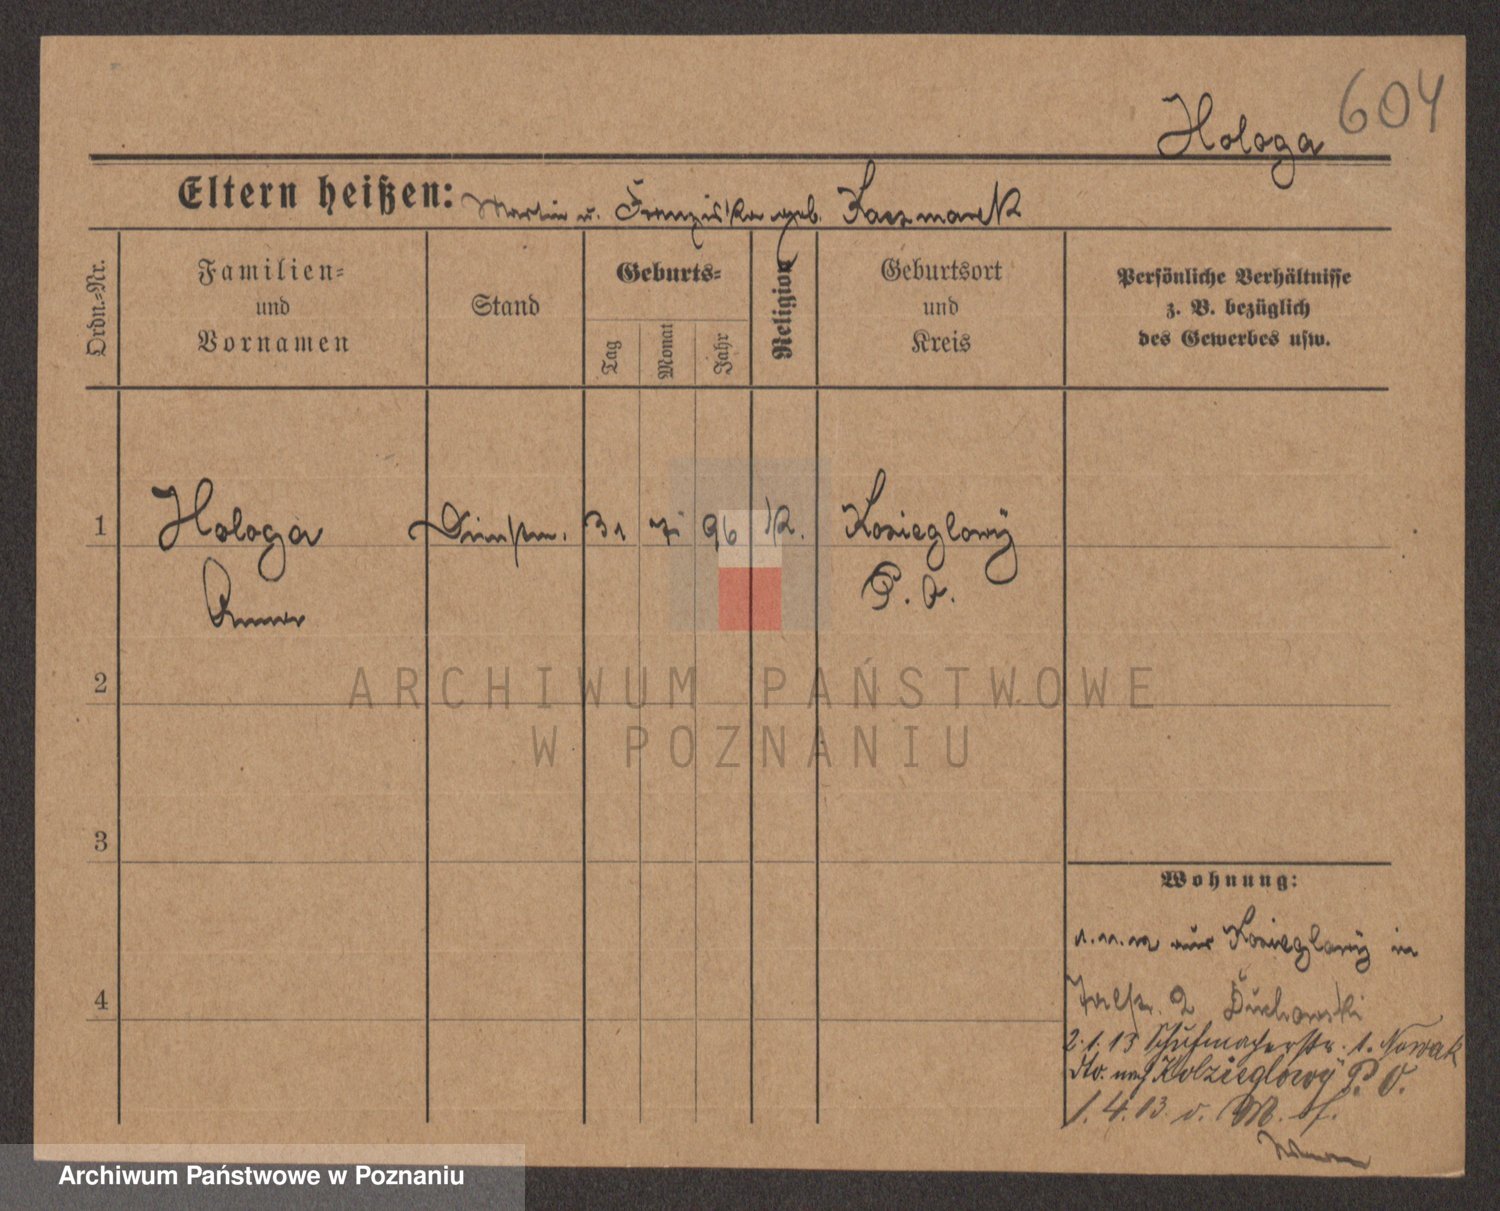 604
Hologa
Eltern heißen: Martin u. Franziska geb. Kaczmarek
Ordn.-Nr.
Familien-
und
Vornamen
Stand
Geburts-
Tag
Monat
Jahr
Religion
Geburtsort
und
Kreis
Persönliche Verhältnisse
z. B. bezüglich
des Gewerbes usw.
1 Hologa 31 7 96 K. Kozieglowÿ
Anna P. O.
ARCHIWUM PAŃSTWOWE
W POZNANIU
2
3
4
Wohnung:
aus Kozieglowÿ in
2
2.1.13 Schuhmacherstr. 1. Nowak
nach Kolzieglowÿ P. O.
1.4.13
Archiwum Państwowe w Poznaniu